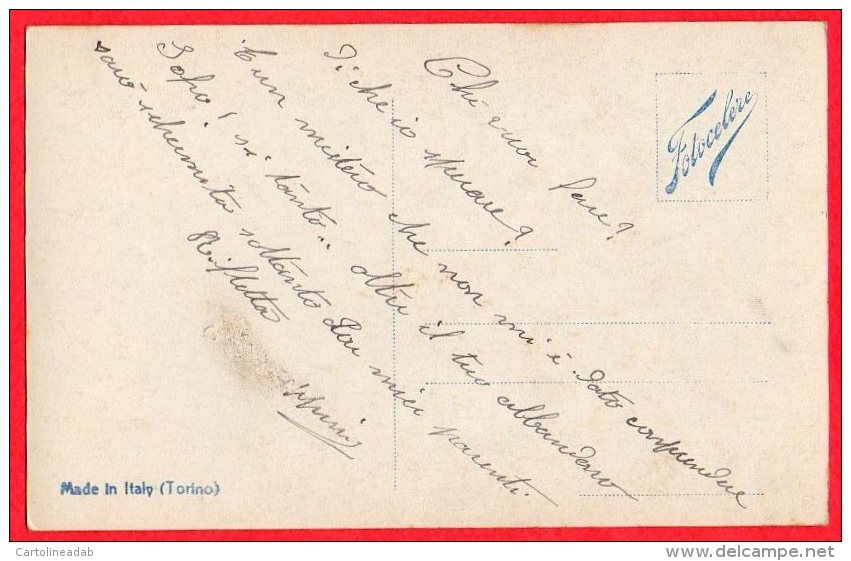 Chi vuoi Pare?
Di che io sperare?
E un mistero che non mi è dato comprendere
Dopo! si tanto... oltre il tuo abbandono
sarò schernita soltanto dai miei parenti.
Rifletta
Fotocelere
Made in Italy (Torino)
Cartolineadab
www.delcampe.net